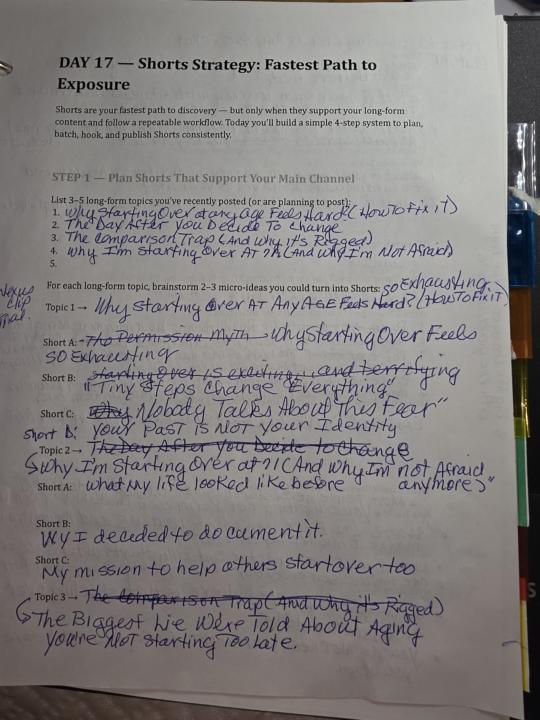 DAY 17 — Shorts Strategy: Fastest Path to
Exposure
Shorts are your fastest path to discovery — but only when they support your long-form
content and follow a repeatable workflow. Today you'll build a simple 4-step system to plan,
batch, hook, and publish Shorts consistently.
STEP 1 — Plan Shorts That Support Your Main Channel
List 3–5 long-form topics you've recently posted (or are planning to post):
1. Why Starting Over at any Age Feels Hard (How To Fix iT)
2. The Day After You Decide To Change
3. The Comparison Trap (And Why it's Rigged)
4. Why I'm Starting Over AT 71 (And Why I'm Not Afraid)
5.
For each long-form topic, brainstorm 2–3 micro-ideas you could turn into Shorts: so Exhausting,
Topic 1 → Why Starting Over AT Any AGE Feels Hard? (How TO FIX IT)
Short A: The Permission Myth → Why Starting Over Feels
SO EXhausting
Short B: starting Over is exciting... and terrifying
"Tiny Steps Change "Everything"
Short C: Why Nobody Talks About This Fear"
Short D: Your Past is NoT Your Identity
Topic 2 → The Day After You Decide to Change
Why I'm Starting Over at 71 (And Why I'm not Afraid
Short A: What My life looked like before anymore)"
Short B:
Wy I decided to document it.
Short C:
My mission to help others start over too
Topic 3 → The Comparison Trap (And Why it's Rigged)
The Biggest Lie We're Told About Aging
You're NoT Starting Too Late.